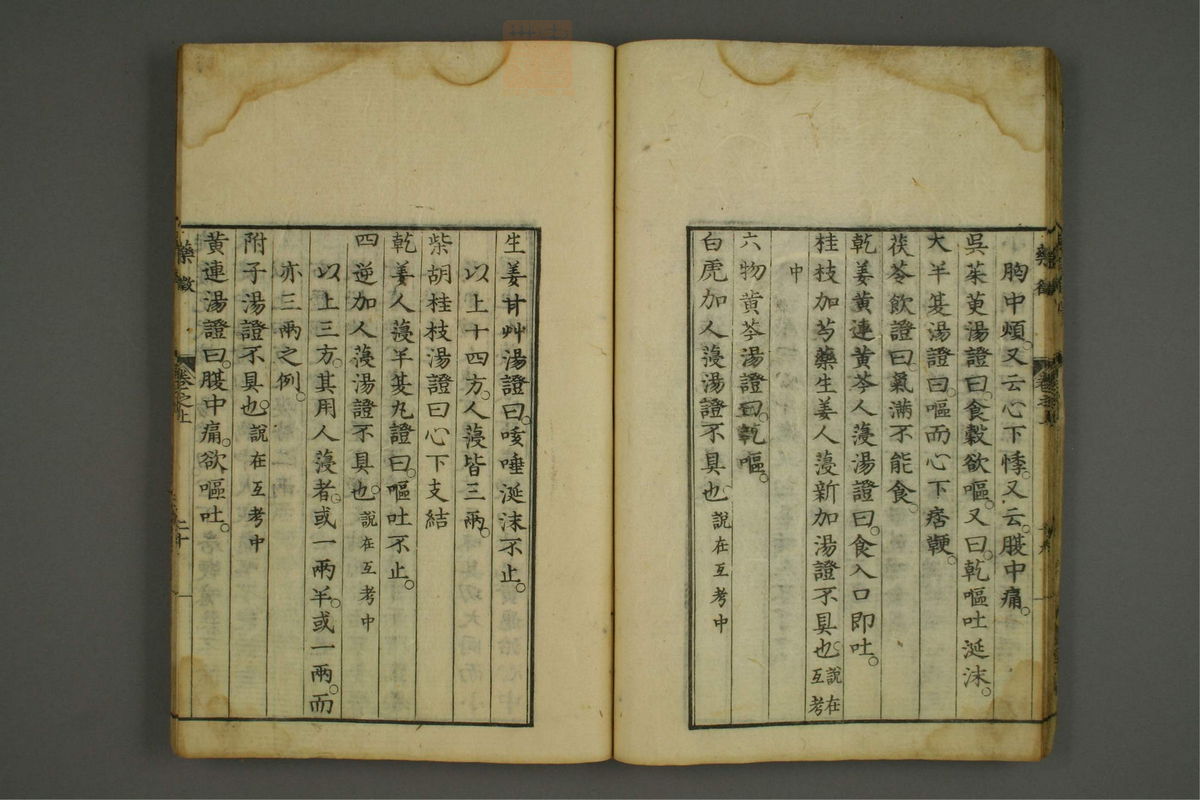 胸中煩。又云心下悸。又云。腹中痛。
吳茱萸湯證曰。食穀欲嘔。又曰。乾嘔吐涎沫。
大半夏湯證曰。嘔而心下痞鞕。
茯苓飲證曰。氣滿不能食。
乾姜黃連黃芩人薓湯證曰。食入口即吐。
桂枝加芍藥生姜人薓新加湯證不具也。說在互考
中
六物黃芩湯證曰。乾嘔。
白虎加人薓湯證不具也。說在互考中
生姜甘艸湯證曰。咳唾涎沫不止。
以上十四方。人薓皆三兩。
柴胡桂枝湯證曰心下支結
乾姜人薓半夏丸證曰。嘔吐不止。
四逆加人薓湯證不具也。說在互考中
以上三方。其用人薓者。或一兩半。或一兩。而
亦三兩之例。
附子湯證不具也。說在互考中
黃連湯證曰。腹中痛。欲嘔吐。
藥徵
卷之上
二十